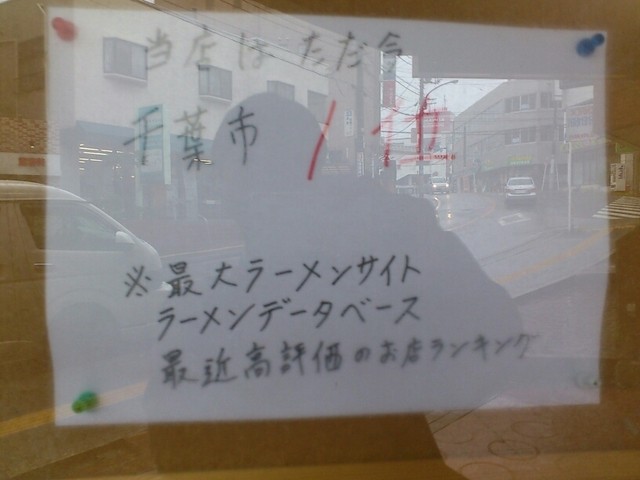 当店はただ今
千葉市 1位
※最大ラーメンサイト
ラーメンデータベース
最近高評価のお店ランキング